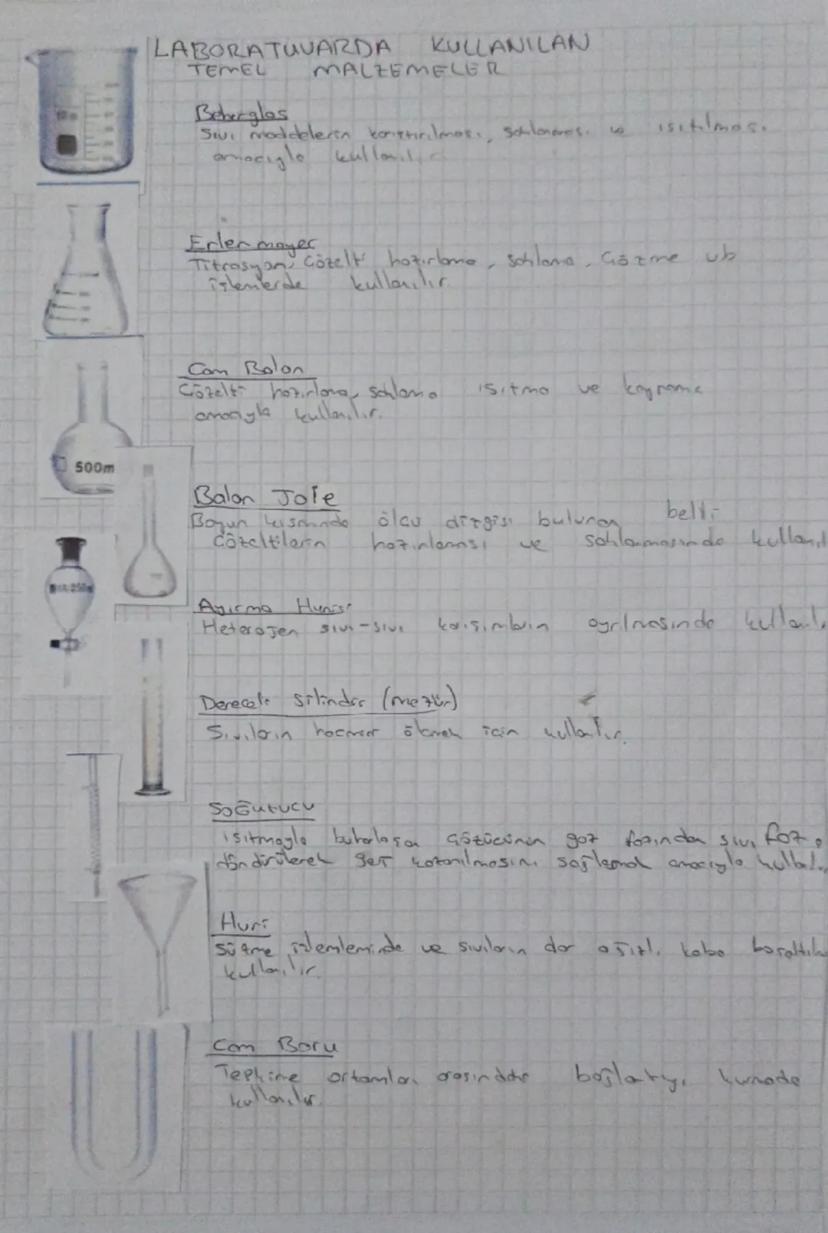 LABORATUVARDA KULLANILAN
TEMEL MALZEMELER
Beherglas
Sıvı maddelerin karıştırılması, saklanması ve ısıtılması
amacıyla kullanılır
Erlenmayer
Titrasyon, Çözelti hazırlama, saklama, Çözme vb
işlemlerde kullanılır.
Cam Balon
Çözelti hazırlama, saklama ısıtma ve kaynama
amacıyla kullanılır.
500m
Balon Joje
Boyun kısmında ölçü çizgisi bulunan belli
Çözeltilerin hazırlanması ve saklanmasında kullanıl
Ayırma Hunisi
Heterojen sıvı-sıvı karışımların ayrılmasında kullanılır
Dereceli silindir (mezür)
Sıvıların hacmini ölçmek için kullanılır.
SOĞUTUCU
ısıtmayla buharlaşan çözücünün gaz fazından sıvı faza
döndürülerek geri kazanılmasını sağlamak amacıyla kullanılır
Huni
Süzme işlemleminde ve sıvıların dar ağızlı kaba
kullanılır.
Cam Boru
Tepkime ortamları arasındaki bağlantıyı kurmada
kullanılır.